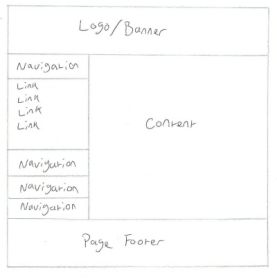 Logo/Banner
Navigation
Link
Link
Link
Link
Content
Navigation
Navigation
Navigation
Page Footer